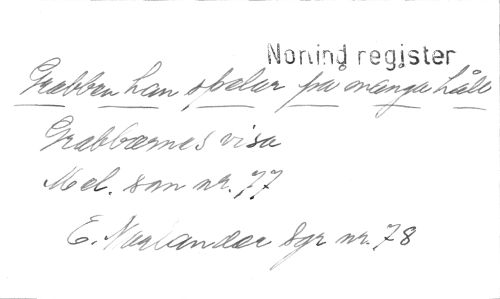 Norlind register
Grabben han spelar på många håll
Grabbarnes visa
Mel. som nr. 77
E. Norlander Sgr nr. 78